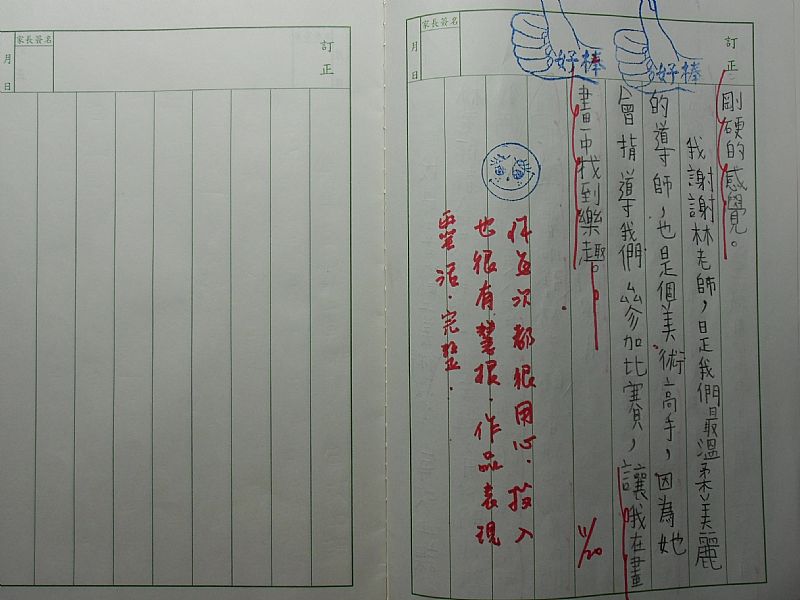 訂正
剛硬的感覺。
我謝謝林老師，是我們最溫柔美麗
的導師，也是個美術高手，因為她
會指導我們參加比賽，讓我在畫
畫中找到樂趣。
11/20
你每次都很用心．投入
也很有慧根．作品表現
靈活．完整．
好棒
好棒
家長簽名
月 日
訂正
家長簽名
月 日